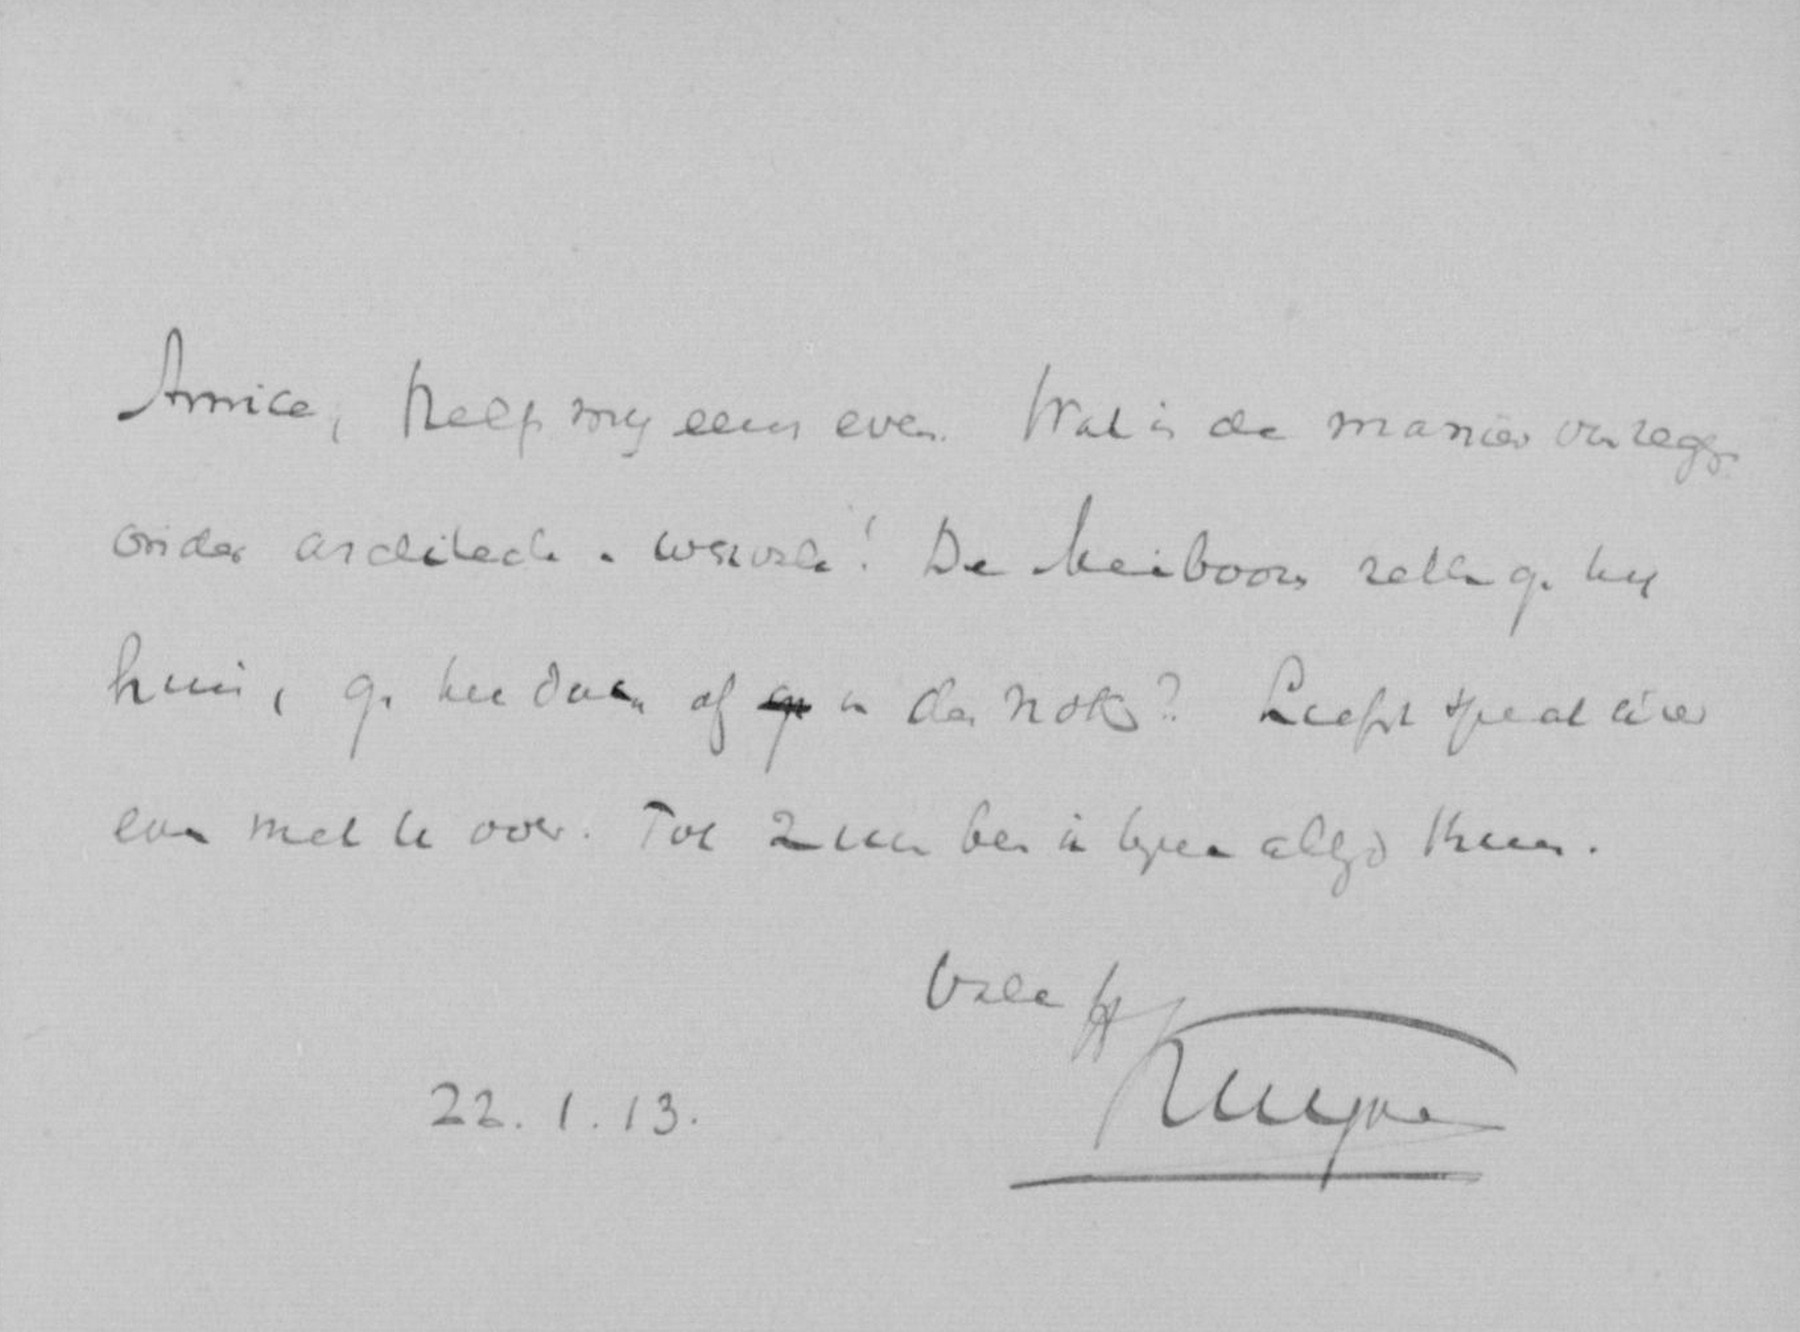 Amice, help mij eens even. Wat is de manier van zegge
onder architecten
De Meiboom zetten ze bij
huis, op het dak of in de nok? Liefst spreek ik er
even met U over. Tot 2 uur ben ik bijna altijd thuis.
Vale H
Kuyper
22.1.13.